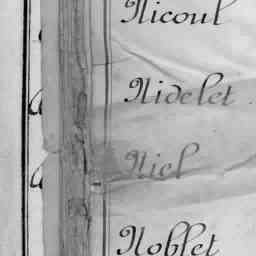 Nicoul
Nivelet
Niel
Noblet